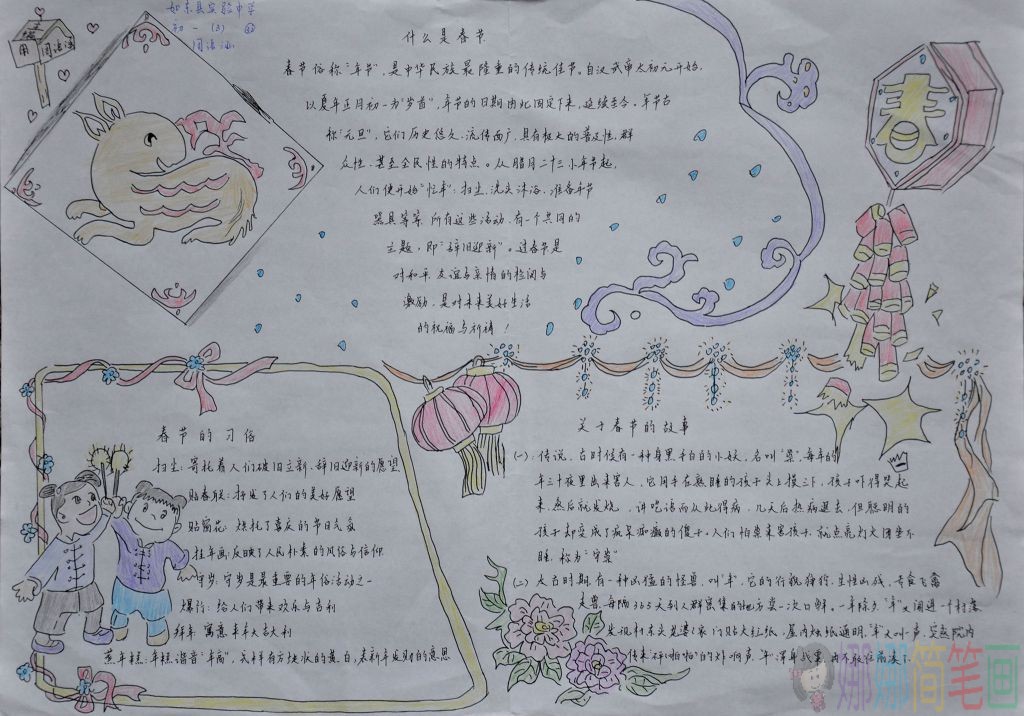 如东县实验中学
初一(3)
周语涵
春
什么是春节
春节俗称"年节",是中华民族最隆重的传统佳节。自汉武帝太初元年始,
以夏年正月初一为"岁首",年节的日期由此固定下来,延续至今。年节古
称"元旦"。它们历史悠久、流传面广,具有极大的普及性、群
众性、甚至全民性的特点。从腊月二十三小年节起,
人们便开始"忙年":扫尘、洗头沐浴、准备年节
器具等等。所有这些活动,有一个共同的
主题,即"辞旧迎新"。过春节是
对和平、友谊与亲情的检阅与
激励,是对未来美好生活
的祝福与祈祷!
春节的习俗
扫尘:寄托着人们破旧立新、辞旧迎新的愿望
贴春联:抒发了人们的美好愿望
贴窗花:烘托了喜庆的节日气氛
挂年画:反映了人民朴素的风俗与信仰
守岁:守岁是最重要的年俗活动之一
爆竹:给人们带来欢乐与吉利
拜年:寓意丰年大吉大利
蒸年糕:年糕谐音"年高",式样有方块状的黄、白,表新年发财的意思
关于春节的故事
(一):传说,古时候有一种身黑手白的小妖,名叫"祟",每年的
年三十夜里出来害人,它用手在熟睡的孩子头上摸三下,孩子吓得哭起
来,然后就发烧,讲呓语而从此得病,几天后热病退去,但聪明的
孩子却变成了痴呆疯癫的傻子。人们怕祟来害孩子,就点亮灯火团坐不
睡,称为"守祟"
(二):太古时期,有一种凶猛的怪兽,叫"年",它的行貌狰狞,生性凶残,专食飞禽
走兽,每隔365天到人群聚集的地方尝一次口鲜。一年除夕"年"又闯进一个村落
发现村东头老婆婆家门贴大红纸,屋内烛纸通明,"年"大叫声,突然院内
传来"砰啪啪"的炸响声,"年"浑身战栗,再不敢往前凑了
娜娜简笔画